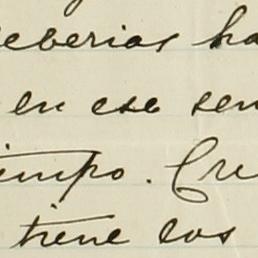 deberias ha
en ese sen
iempo. Cre
tiene los